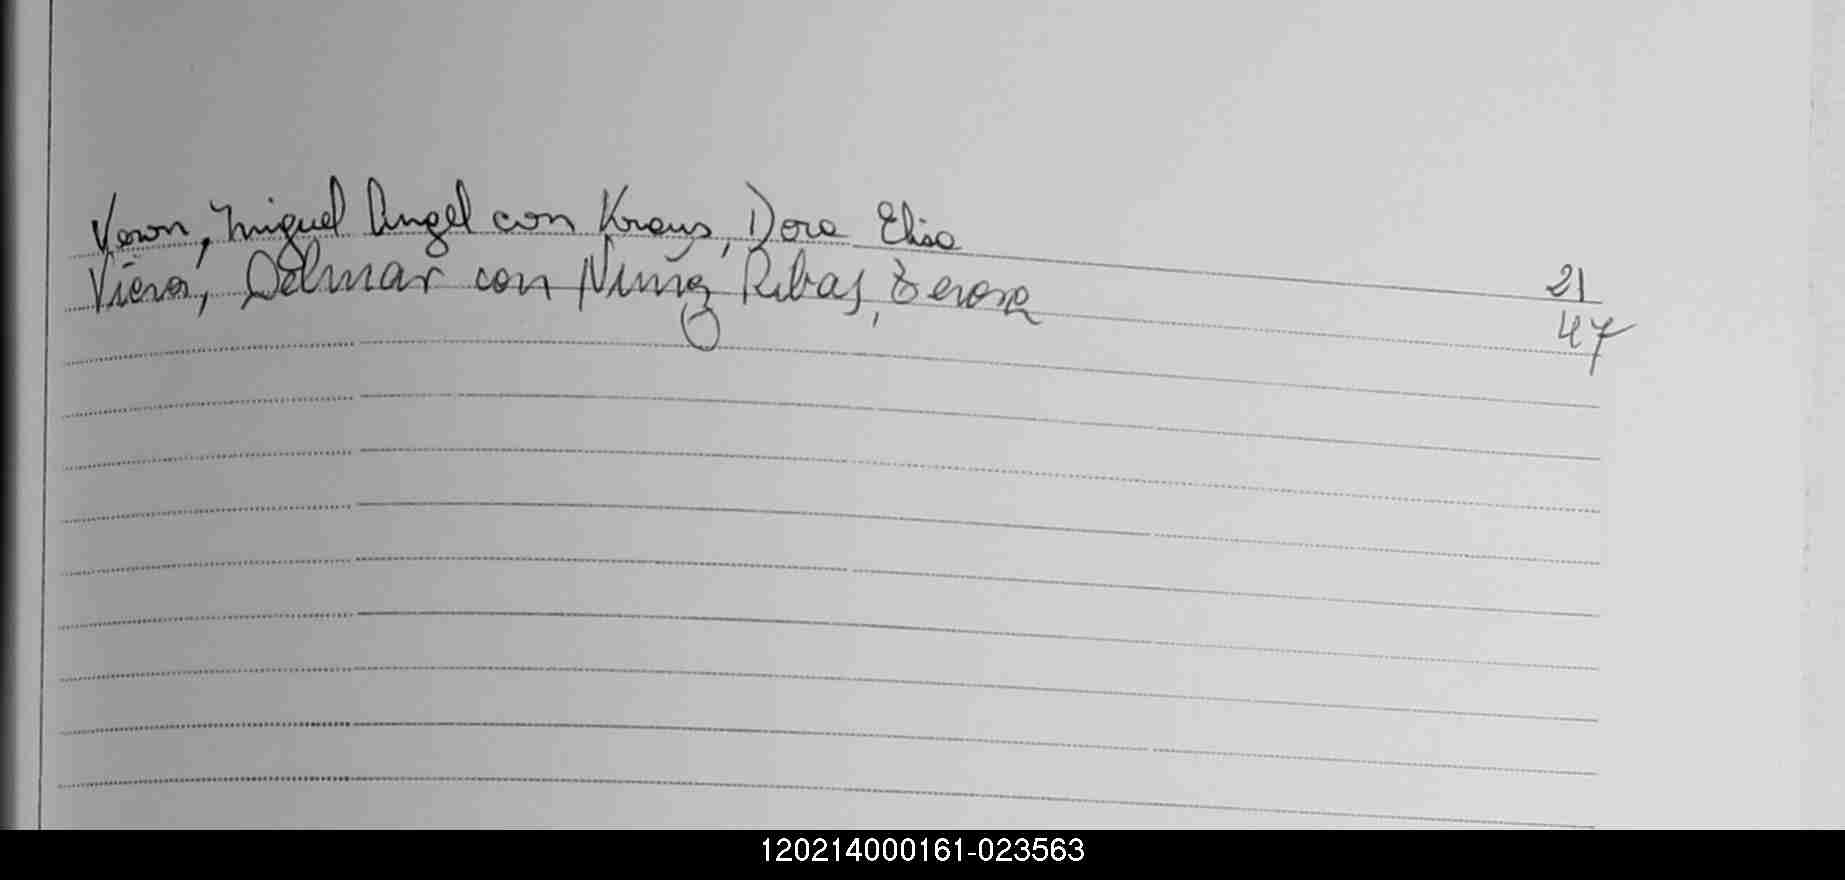 Veron, Miguel Angel con Kraus, Dora Elisa 21
Viera, Delmar con Nuñez Ribas, 47
120214000161-023563